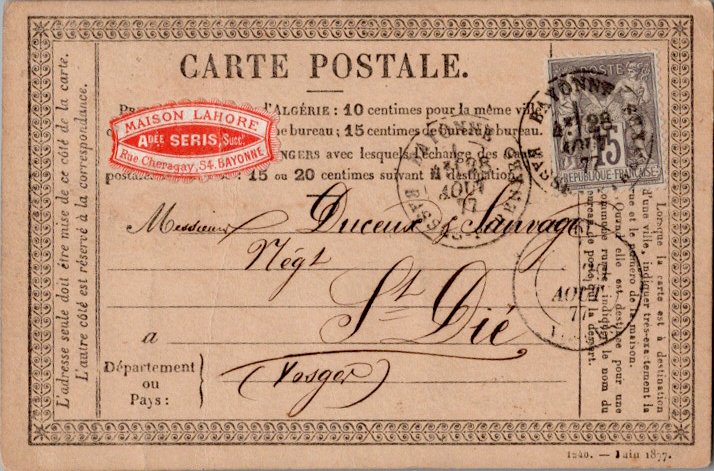 CARTE POSTALE.
MAISON LAHORE
ADÉE SERIS, Succr.
Rue Chegaray, 54. BAYONNE
d'ALGÉRIE : 10 centimes pour la même ville
de bureau ; 15 centimes de bureau à bureau.
avec lesquels l'échange des cartes
15 ou 20 centimes suivant la destination
POSTE
15
REPUBLIQUE FRANÇAISE
BAYONNE
28
AOUT
77
BAYONNE
28
AOUT
77
AOUT
77
Messieurs Duceux & Sauvage
Négt
St Dié
a
Département
ou
Pays :
(Vosges)
L'adresse seule doit être mise de ce côté de la carte.
L'autre côté est réservé à la correspondance.
Lorsque la carte est à destination
d'une ville, indiquer très-exactement la
rue et le numéro de la maison.
Quand elle est destinée pour une
commune rurale, indiquer le nom du
bureau de poste qui la dessert.
1240. — Juin 1877.